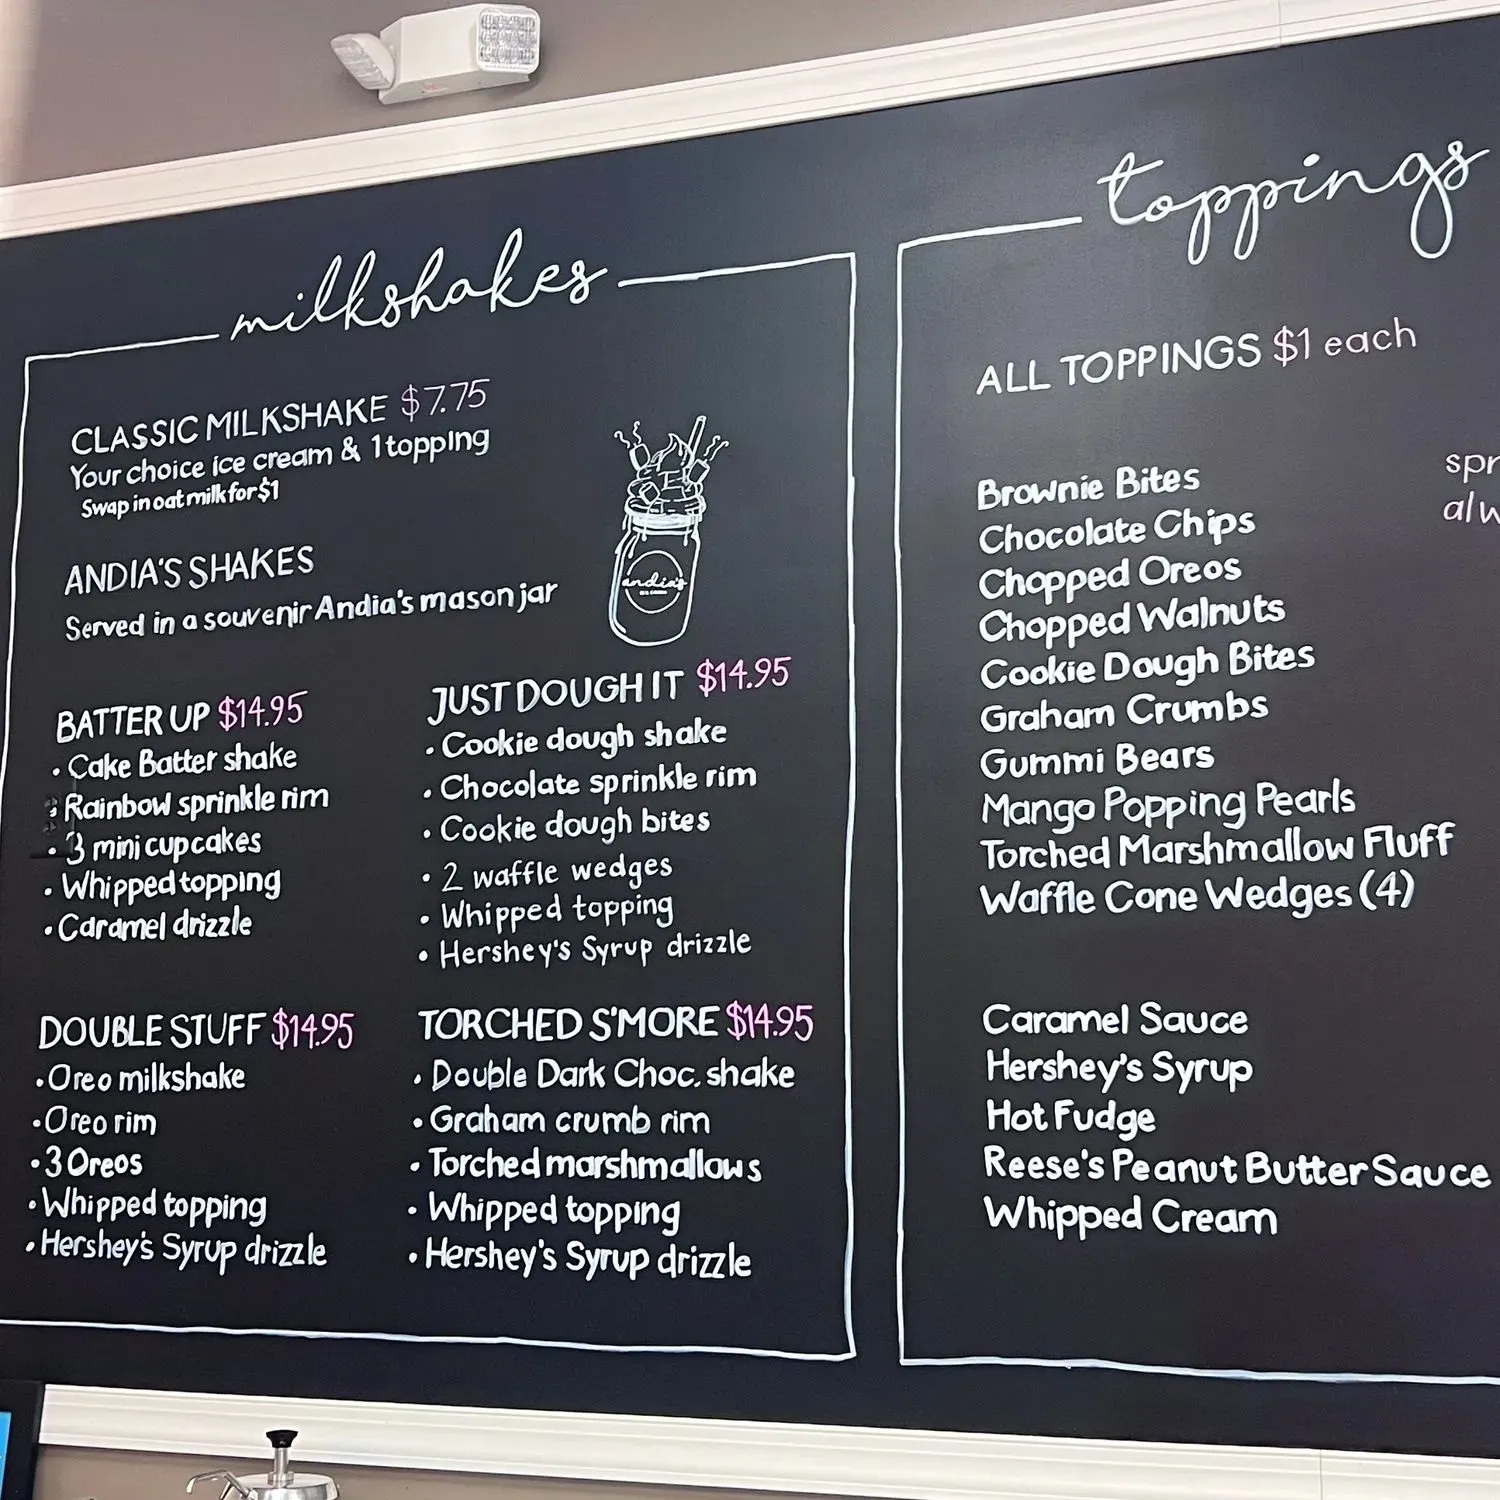 milkshakes
CLASSIC MILKSHAKE $7.75
Your choice ice cream & 1 topping
Swap in oat milk for $1
ANDIA'S SHAKES
Served in a souvenir Andia's mason jar
andia's
BATTER UP $14.95
• Cake Batter shake
• Rainbow sprinkle rim
• 3 mini cupcakes
• Whipped topping
• Caramel drizzle
JUST DOUGH IT $14.95
• Cookie dough shake
• Chocolate sprinkle rim
• Cookie dough bites
• 2 waffle wedges
• Whipped topping
• Hershey's Syrup drizzle
DOUBLE STUFF $14.95
• Oreo milkshake
• Oreo rim
• 3 Oreos
• Whipped topping
• Hershey's Syrup drizzle
TORCHED S'MORE $14.95
• Double Dark Choc. shake
• Graham crumb rim
• Torched marshmallows
• Whipped topping
• Hershey's Syrup drizzle
toppings
ALL TOPPINGS $1 each
Brownie Bites
Chocolate Chips
Chopped Oreos
Chopped Walnuts
Cookie Dough Bites
Graham Crumbs
Gummi Bears
Mango Popping Pearls
Torched Marshmallow Fluff
Waffle Cone Wedges (4)
Caramel Sauce
Hershey's Syrup
Hot Fudge
Reese's Peanut Butter Sauce
Whipped Cream
spr
alw